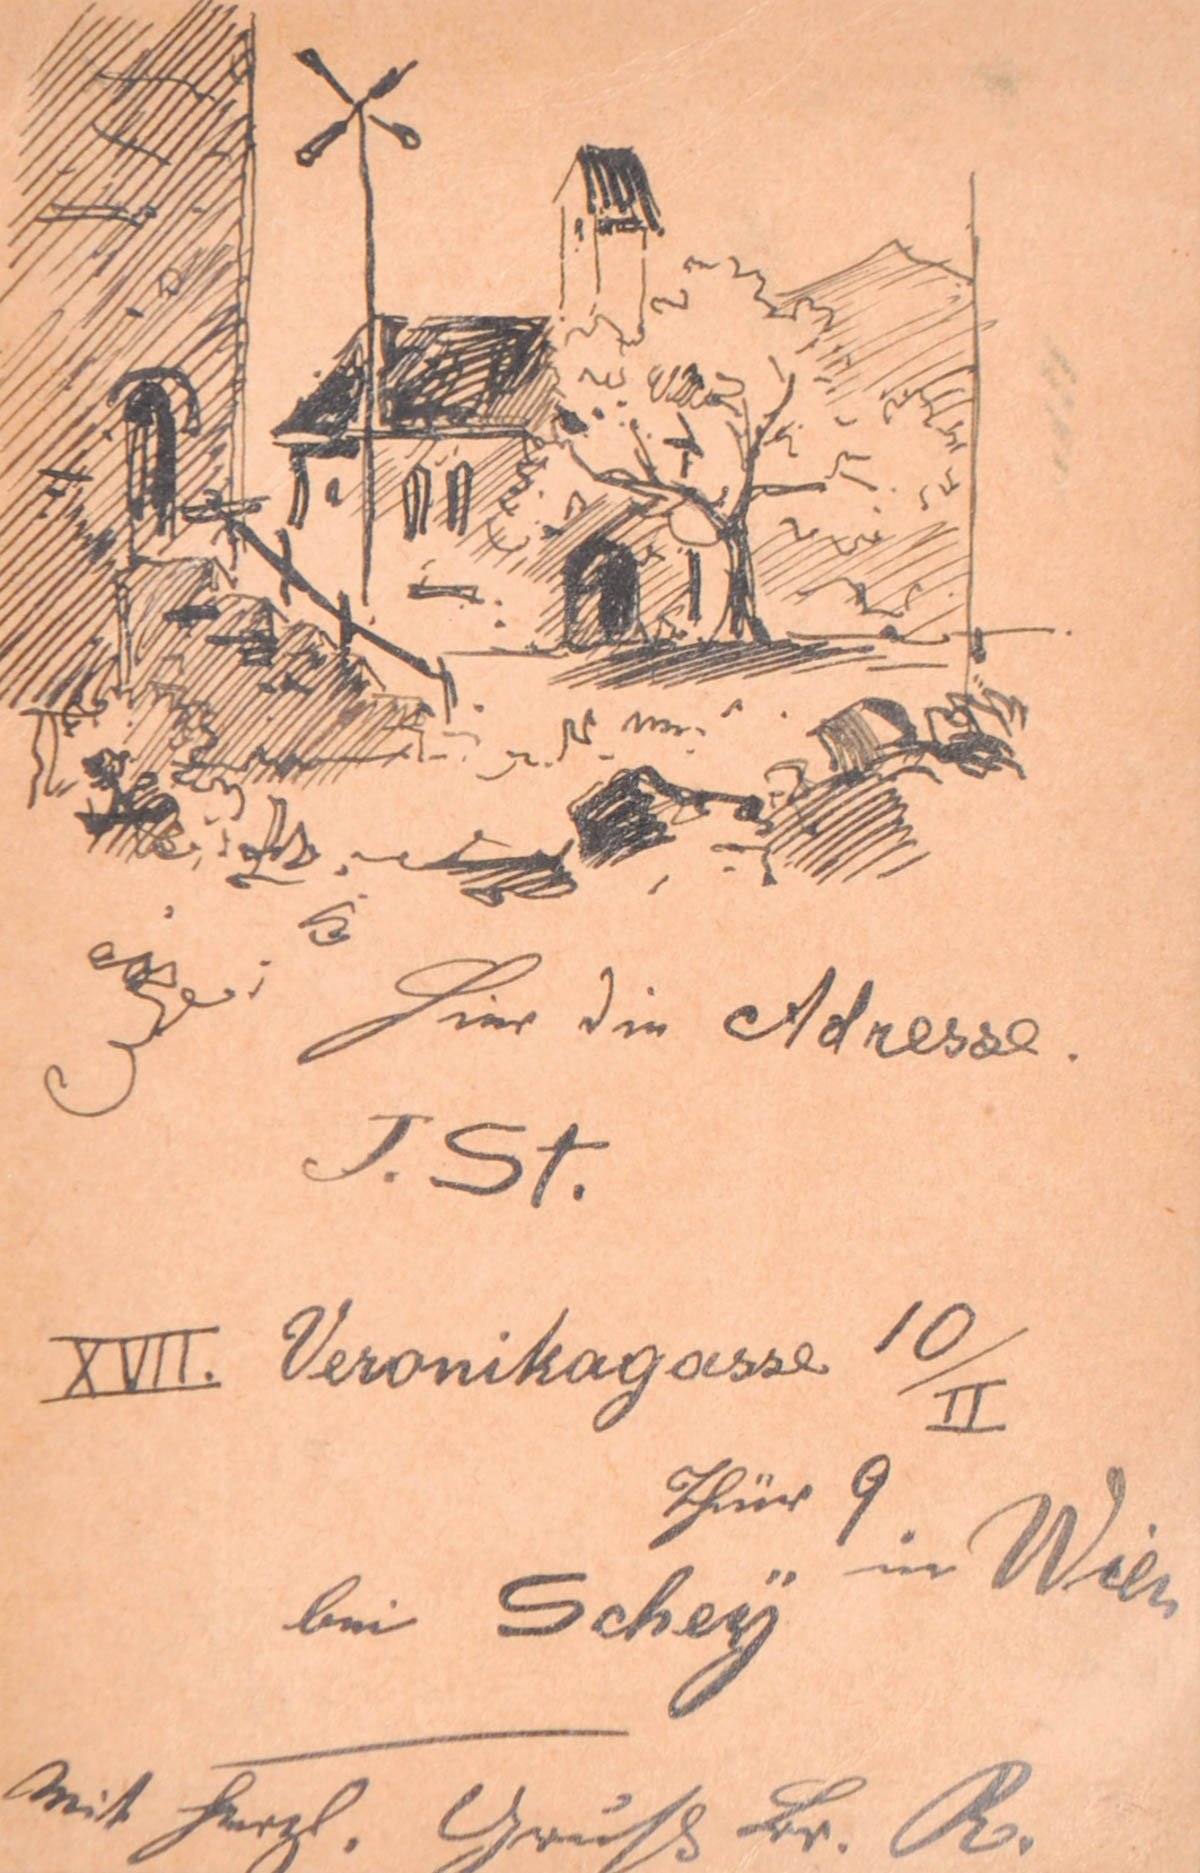 Hier die Adresse.
J. St.
XVII. Veronikagasse 10/II
Thür 9.
bei Scheÿ in Wien
mit herzl. Gruß Br. R.